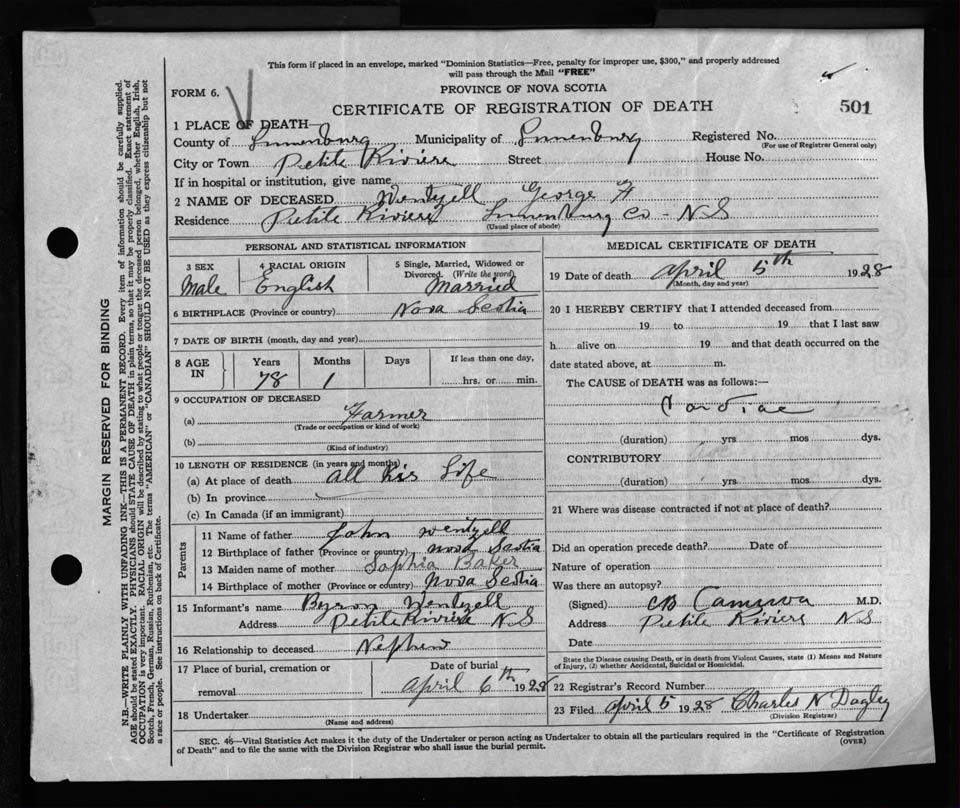 This form if placed in an envelope, marked "Dominion Statistics—Free, penalty for improper use, $300," and properly addressed
will pass through the Mail "FREE"
FORM 6.
PROVINCE OF NOVA SCOTIA
CERTIFICATE OF REGISTRATION OF DEATH
501
1 PLACE OF DEATH—
County of Lunenburg Municipality of Lunenburg Registered No.
(For use of Registrar General only)
City or Town Petite Riviere Street House No.
If in hospital or institution, give name
2 NAME OF DECEASED Wentzell George F
Residence Petite Riviere Lunenburg Co - N S
(Usual place of abode)
PERSONAL AND STATISTICAL INFORMATION
3 SEX
Male
4 RACIAL ORIGIN
English
5 Single, Married, Widowed or
Divorced. (Write the word)
Married
6 BIRTHPLACE (Province or country) Nova Scotia
7 DATE OF BIRTH (month, day and year)
8 AGE IN
Years Months Days If less than one day,
78 1 hrs. or min.
9 OCCUPATION OF DECEASED
(a) Farmer
(Trade or occupation or kind of work)
(b)
(Kind of industry)
10 LENGTH OF RESIDENCE (in years and months)
(a) At place of death all his Life
(b) In province
(c) In Canada (if an immigrant)
Parents
11 Name of father John Wentzell
12 Birthplace of father (Province or country) Nova Scotia
13 Maiden name of mother Sophia Baker
14 Birthplace of mother (Province or country) Nova Scotia
15 Informant's name Byron Wentzell
Address Petite Riviere N S
16 Relationship to deceased Nephew
17 Place of burial, cremation or Date of burial
removal April 6th 1928
18 Undertaker
(Name and address)
MEDICAL CERTIFICATE OF DEATH
19 Date of death April 5th 1928
(Month, day and year)
20 I HEREBY CERTIFY that I attended deceased from
19 to 19 that I last saw
h alive on 19 and that death occurred on the
date stated above, at m.
The CAUSE of DEATH was as follows:—
Cardiac
(duration) yrs mos dys.
CONTRIBUTORY
(duration) yrs. mos dys.
21 Where was disease contracted if not at place of death?
Did an operation precede death? Date of
Nature of operation
Was there an autopsy?
(Signed) CB M.D.
Address Petite Riviere N S
Date
State the Disease causing Death, or in death from Violent Causes, state (1) Means and Nature
of Injury, (2) whether Accidental, Suicidal or Homicidal.
22 Registrar's Record Number
23 Filed April 5 1928 Charles N Dagley
(Division Registrar)
SEC. 46—Vital Statistics Act makes it the duty of the Undertaker or person acting as Undertaker to obtain all the particulars required in the "Certificate of Registration
of Death" and to file the same with the Division Registrar who shall issue the burial permit. (OVER)
MARGIN RESERVED FOR BINDING
N.B.—WRITE PLAINLY WITH UNFADING INK—THIS IS A PERMANENT RECORD. Every item of information should be carefully supplied.
AGE should be stated EXACTLY. PHYSICIANS should STATE CAUSE OF DEATH in plain terms, so that it may be properly classified. Exact statement of
OCCUPATION is very important. RACIAL ORIGIN will be described by stating to what people or tongue the deceased person belonged, whether English, Irish,
Scotch, French, German, Russian, Ruthenian, etc. The terms "AMERICAN" or "CANADIAN" SHOULD NOT BE USED as they express citizenship but not
a race or people. See instructions on back of Certificate.